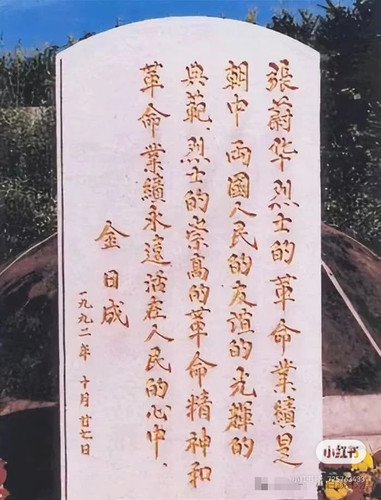 張蔚华烈士的革命業績是
朝中两國人民的友誼的光輝的
典範、烈士的崇高的革命精神和
革命業績永遠活在人民的心中、
金日成
一九九二年 十月 廿七日
小红书